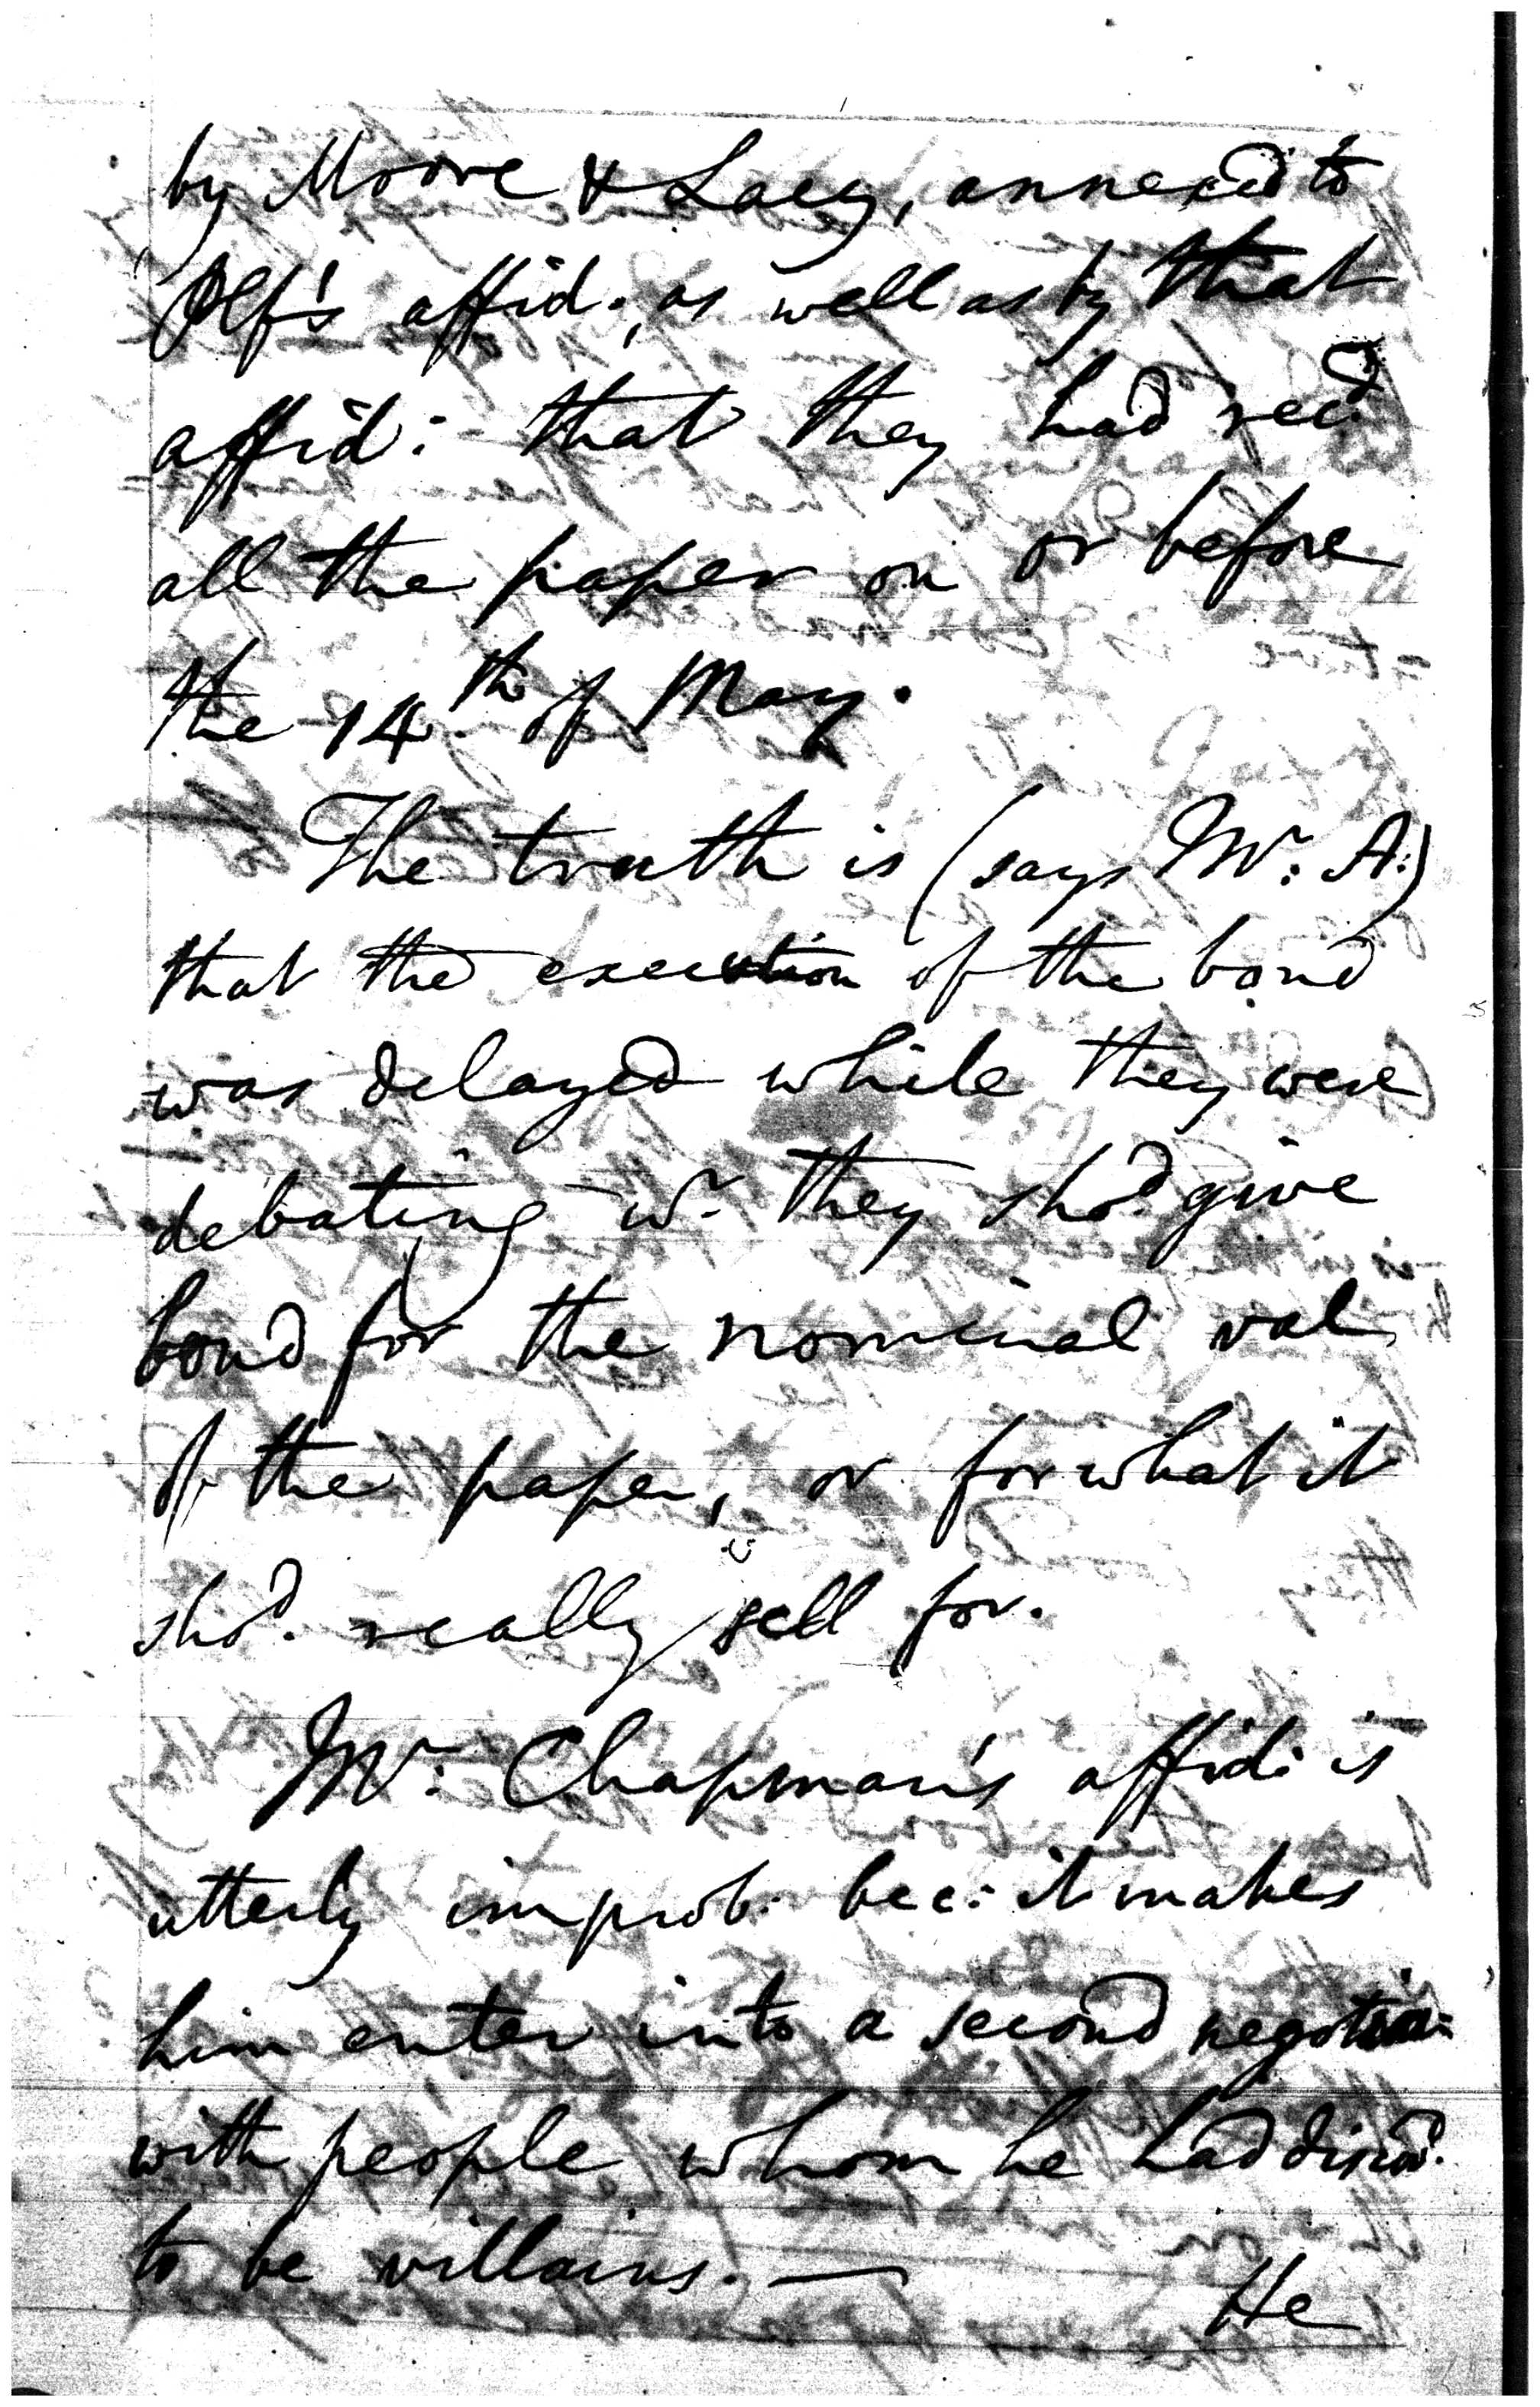 by Moore & Lacy, annexed to
Plf's affid:, as well as by that
affid: that they had recd.
all the paper on or before
the 14th. of May.
The truth is (says Mr: A:)
that the execution of the bond
was delayed while they were
debating wr. they shod. give
bond for the nominal val.
of the paper, or for what it
shod. really sell for.
Mr: Chapman's affid: is
utterly improb: bec: it makes
him enter into a second negotia=
with people whom he had discod.
to be villains. —
He